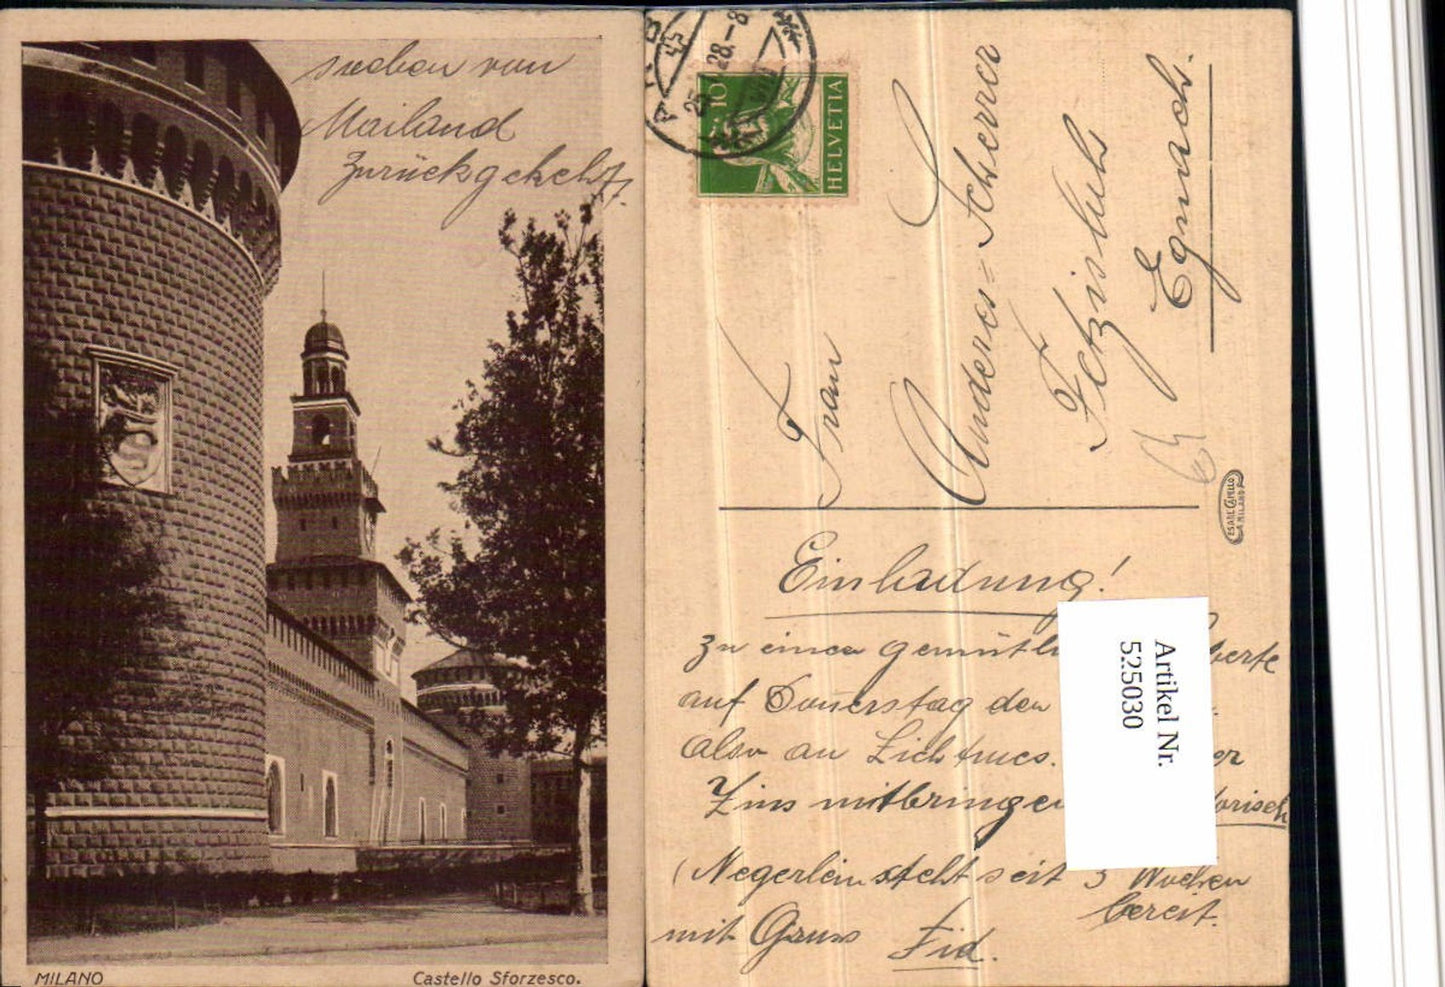 soeben von
Mailand
Zurückgekehrt.
MILANO
Castello Sforzesco.
HELVETIA
10
Frau
Anderes-Scherrer
Egnach.
CESARE CAPELLO
MILANO
Einladung!
zu einer
auf Donerstag den
Also an Lichtmes.
Zins mitbringen
(Negerlein steht seit 3 Wochen
bereit.
mit Gruss Fid.
Artikel Nr.
525030